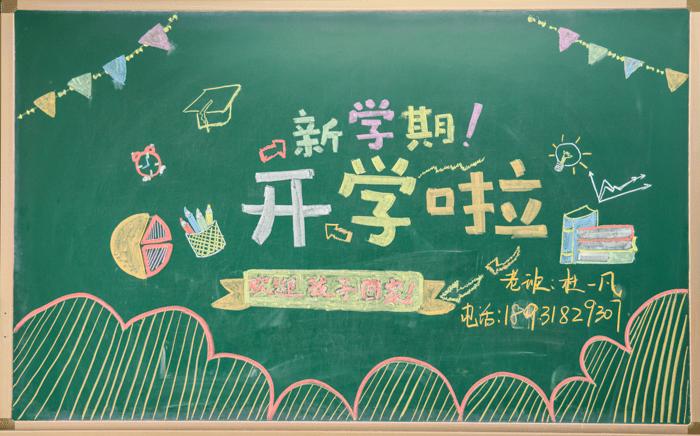 新学期!
开学啦
欢迎孩子回家!
老班:杜一凡
电话:18931829307